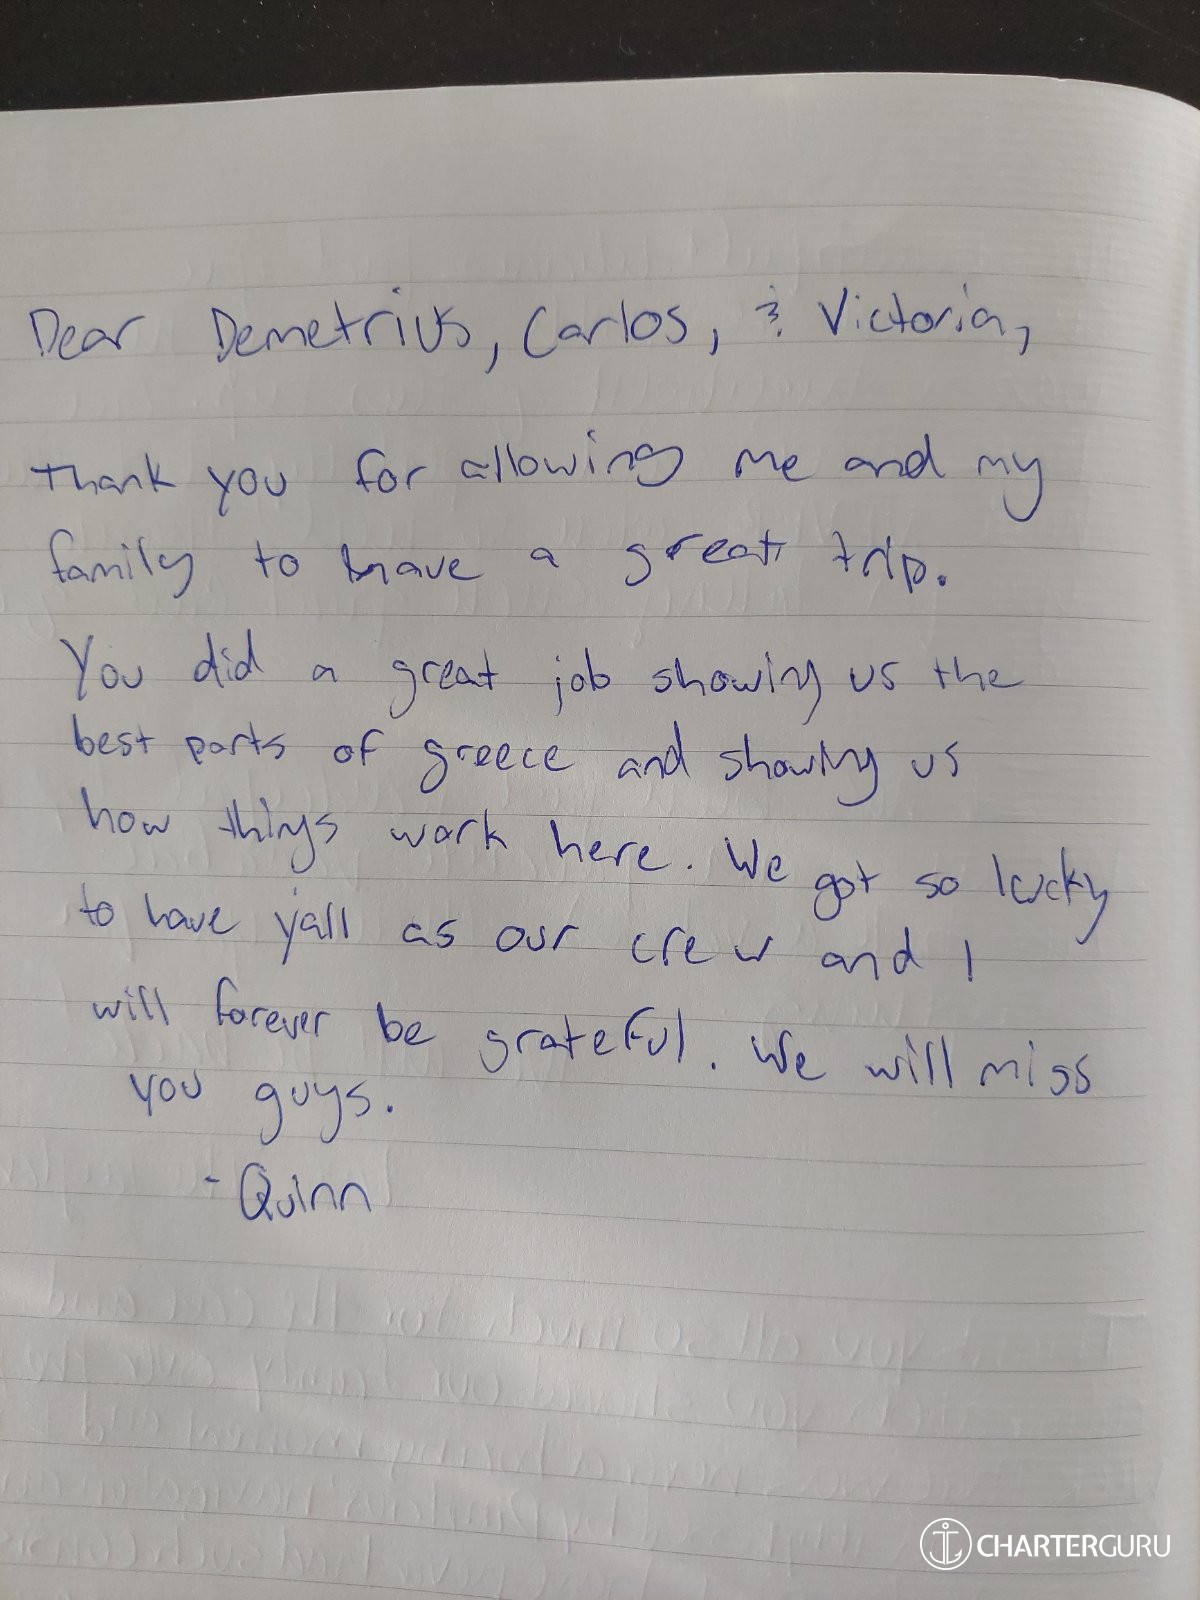 Dear Demetrius, Carlos, & Victoria,
Thank you for allowing me and my
family to have a great trip.
You did a great job showing us the
best parts of greece and showing us
how things work here. We got so lucky
to have y'all as our crew and I
will forever be grateful. We will miss
you guys.
- Quinn
CHARTERGURU